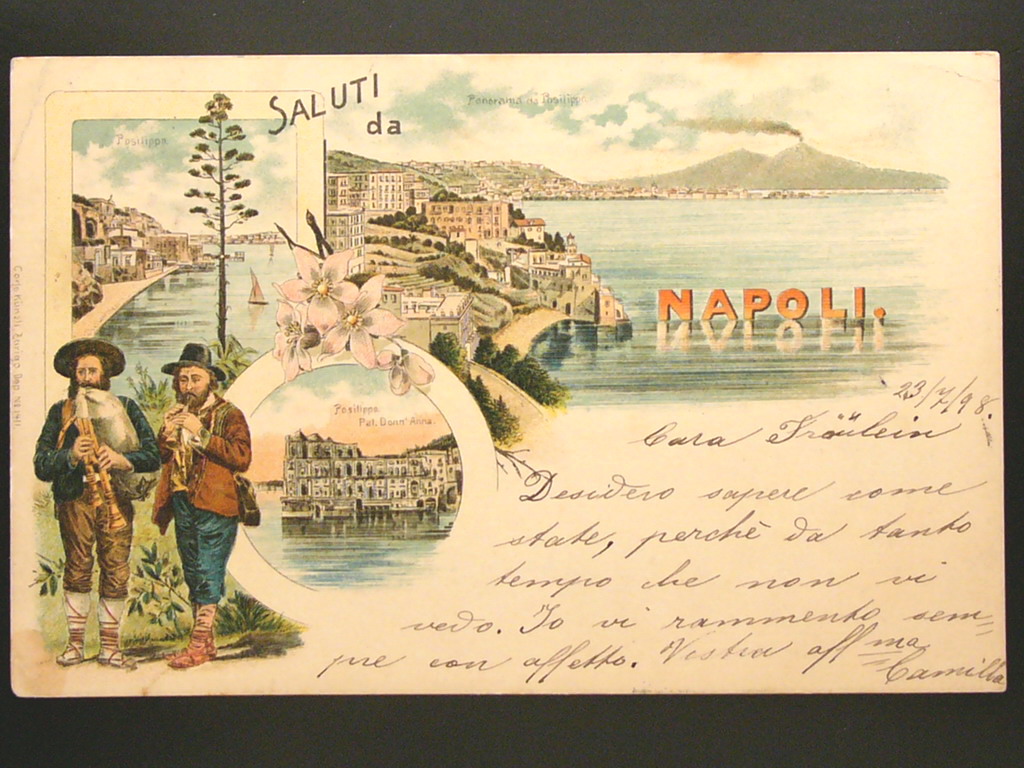 SALUTI
da
Posilippo
Panorama da Posilippo
NAPOLI.
Posilippo
Pal. Donn' Anna.
23/7/98.
Cara Fräulein
Desidero sapere come
state, perchè da tanto
tempo che non vi
vedo. Io vi rammento sem=
pre con affetto. Vostra aff ma
Camilla